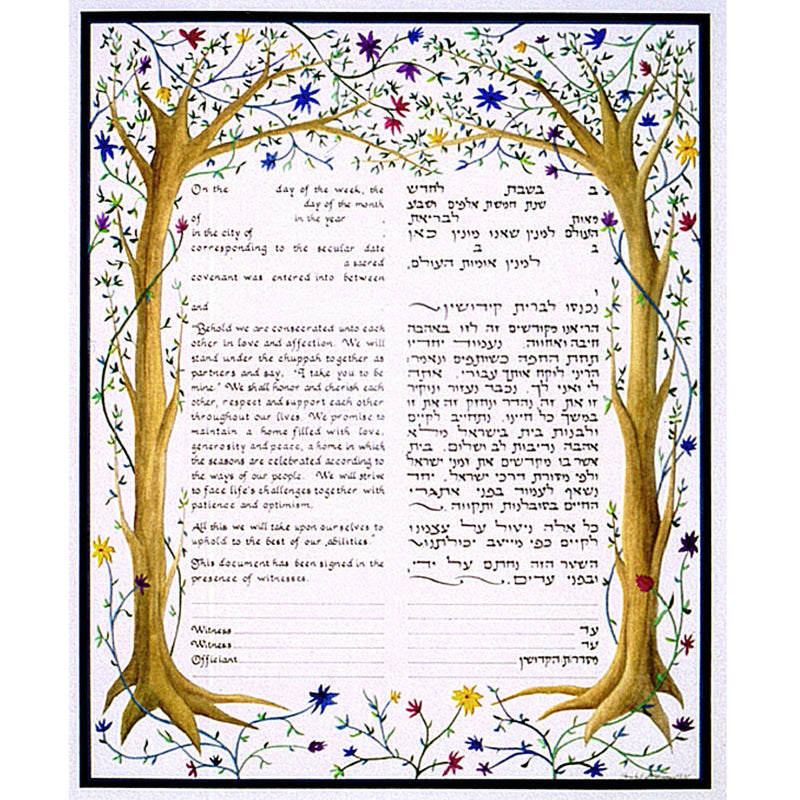 On the day of the week, the
day of the month
of in the year ,
in the city of ,
corresponding to the secular date
a sacred
covenant was entered into between
and
"Behold we are consecrated unto each
other in love and affection. We will
stand under the chuppah together as
partners and say, "I take you to be
mine." We shall honor and cherish each
other, respect and support each other
throughout our lives. We promise to
maintain a home filled with love,
generosity and peace, a home in which
the seasons are celebrated according to
the ways of our people. We will strive
to face life's challenges together with
patience and optimism.
All this we will take upon ourselves to
uphold to the best of our abilities."
This document has been signed in the
presence of witnesses.
Witness
Witness
Officiant
ב בשבת לחדש
שנת חמשת אלפים ושבע
מאות לבריאת
העולם למנין שאנו מונין כאן
ב ב
למנין אומות העולם,
ו
נכנסו לברית קידושין
הרי אנו מקודשים זה לזו באהבה
חיבה ואחווה. נעמוד יחדיו
תחת החפה כשותפים ונאמר:
הריני לוקח אותך עבורי. אתה
לי ואני לך. נכבד נעזור ונוקיר
זו את זה נהדר ונחזק זה את זו
במשך כל חיינו. נתחייב לקיים
ולבנות בית בישראל מלא
אהבה נדיבות לב ושלום. בית
אשר בו מקדשים את זמני ישראל
ולפי מסורת דרכי ישראל. יחד
נשאף לעמוד בפני אתגרי
החיים בסובלנות ותקווה.
כל אלה ניטול על עצמנו
לקיים כפי מיטב יכולתנו
השטר הזה נחתם על ידי,
ובפני עדים.
עד
עד
מסדרת הקדושין